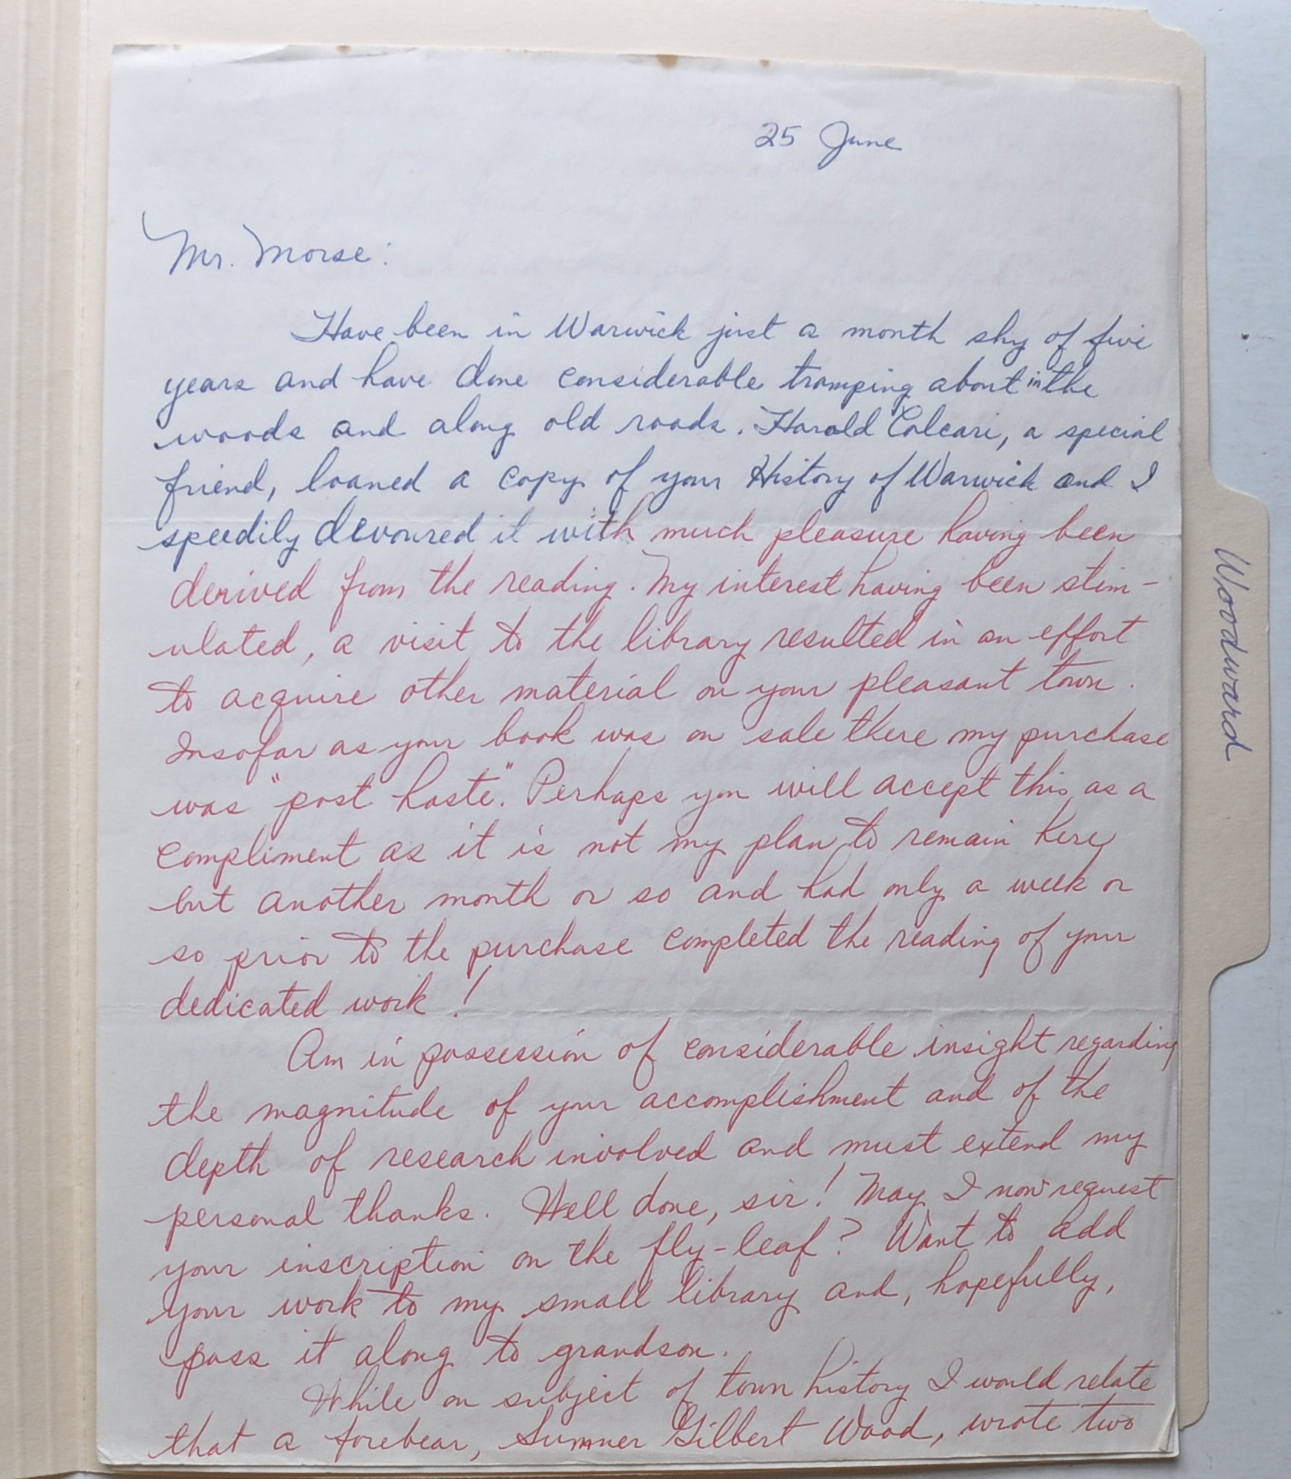 25 June
Mr. Morse:
Have been in Warwick just a month shy of five
years and have done considerable tramping about in the
woods and along old roads. Harold Colcari, a special
friend, loaned a copy of your History of Warwick and I
speedily devoured it with much pleasure having been
derived from the reading. My interest having been stim-
ulated, a visit to the library resulted in an effort
to acquire other material on your pleasant town.
Insofar as your book was on sale there my purchase
was "post haste". Perhaps you will accept this as a
compliment as it is not my plan to remain here
but another month or so and had only a week or
so prior to the purchase completed the reading of your
dedicated work!
Am in possession of considerable insight regarding
the magnitude of your accomplishment and of the
depth of research involved and must extend my
personal thanks. Well done, sir! May I now request
your inscription on the fly-leaf? Want to add
your work to my small library and, hopefully,
pass it along to grandson.
While on subject of town history I would relate
that a forebear, Sumner Gilbert Wood, wrote two
Woodward